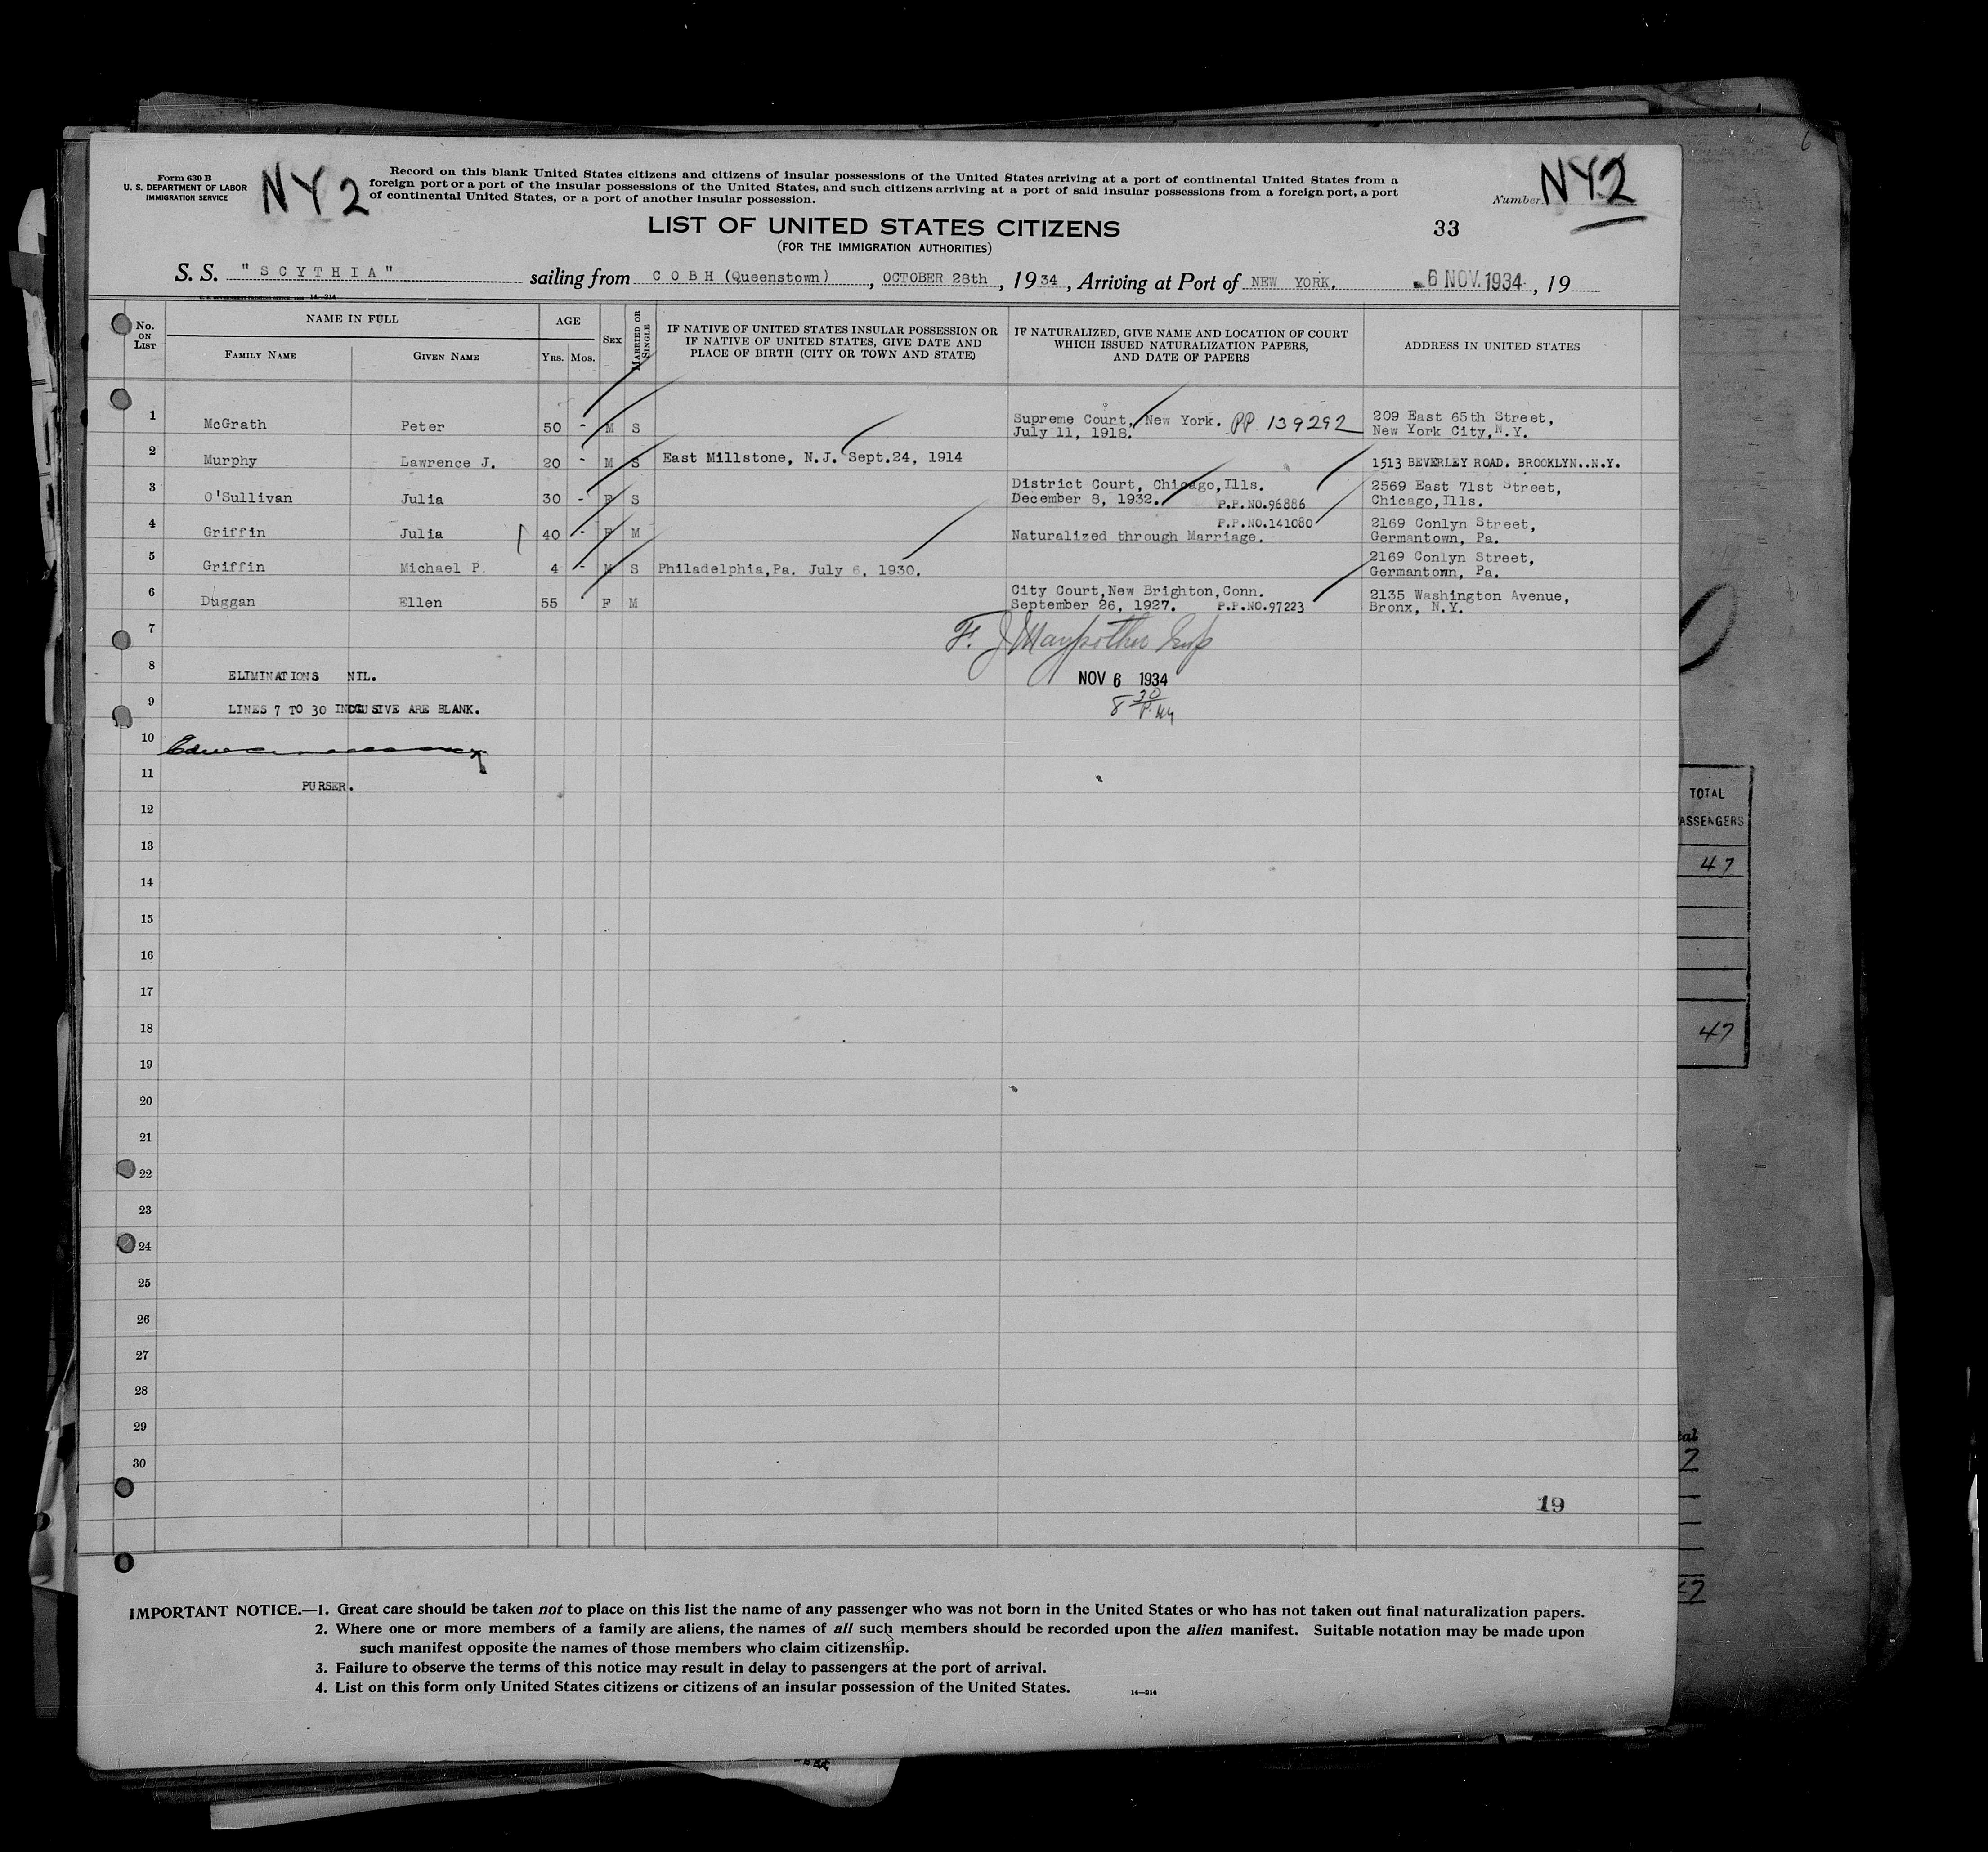 Form 630 B
U. S. DEPARTMENT OF LABOR
IMMIGRATION SERVICE
NY2
Record on this blank United States citizens and citizens of insular possessions of the United States arriving at a port of continental United States from a
foreign port or a port of the insular possessions of the United States, and such citizens arriving at a port of said insular possessions from a foreign port, a port
of continental United States, or a port of another insular possession.
Number NY2
LIST OF UNITED STATES CITIZENS
33
(FOR THE IMMIGRATION AUTHORITIES)
S. S. "SCYTHIA" sailing from COBH (Queenstown), OCTOBER 28th, 1934, Arriving at Port of NEW YORK. 6 NOV. 1934, 19
14—214
No. ON LIST
NAME IN FULL
FAMILY NAME
GIVEN NAME
AGE
YRS.
MOS.
SEX
MARRIED OR SINGLE
IF NATIVE OF UNITED STATES INSULAR POSSESSION OR
IF NATIVE OF UNITED STATES, GIVE DATE AND
PLACE OF BIRTH (CITY OR TOWN AND STATE)
IF NATURALIZED, GIVE NAME AND LOCATION OF COURT
WHICH ISSUED NATURALIZATION PAPERS,
AND DATE OF PAPERS
ADDRESS IN UNITED STATES
1 McGrath Peter 50 - M S Supreme Court, New York. PP 139292 209 East 65th Street,
July 11, 1918. New York City, N.Y.
2 Murphy Lawrence J. 20 - M S East Millstone, N.J. Sept.24, 1914 1513 BEVERLEY ROAD. BROOKLYN..N.Y.
3 O'Sullivan Julia 30 - F S District Court, Chicago,Ills. 2569 East 71st Street,
December 8, 1932. P.P.NO.96886 Chicago,Ills.
4 Griffin Julia 40 - F M P.P.NO.141080 2169 Conlyn Street,
Naturalized through Marriage. Germantown, Pa.
5 Griffin Michael P. 4 - M S Philadelphia,Pa. July 6, 1930. 2169 Conlyn Street,
Germantown, Pa.
6 Duggan Ellen 55 F M City Court,New Brighton,Conn. 2135 Washington Avenue,
September 26, 1927. P.P.NO.97223 Bronx, N.Y.
7
8 ELIMINATIONS NIL.
NOV 6 1934
8 30 P.
9 LINES 7 TO 30 INCLUSIVE ARE BLANK.
10
11 PURSER.
12
13
14
15
16
17
18
19
20
21
22
23
24
25
26
27
28
29
30
19
TOTAL
ASSENGERS
47
47
IMPORTANT NOTICE.—1. Great care should be taken not to place on this list the name of any passenger who was not born in the United States or who has not taken out final naturalization papers.
2. Where one or more members of a family are aliens, the names of all such members should be recorded upon the alien manifest. Suitable notation may be made upon
such manifest opposite the names of those members who claim citizenship.
3. Failure to observe the terms of this notice may result in delay to passengers at the port of arrival.
4. List on this form only United States citizens or citizens of an insular possession of the United States.
14—214